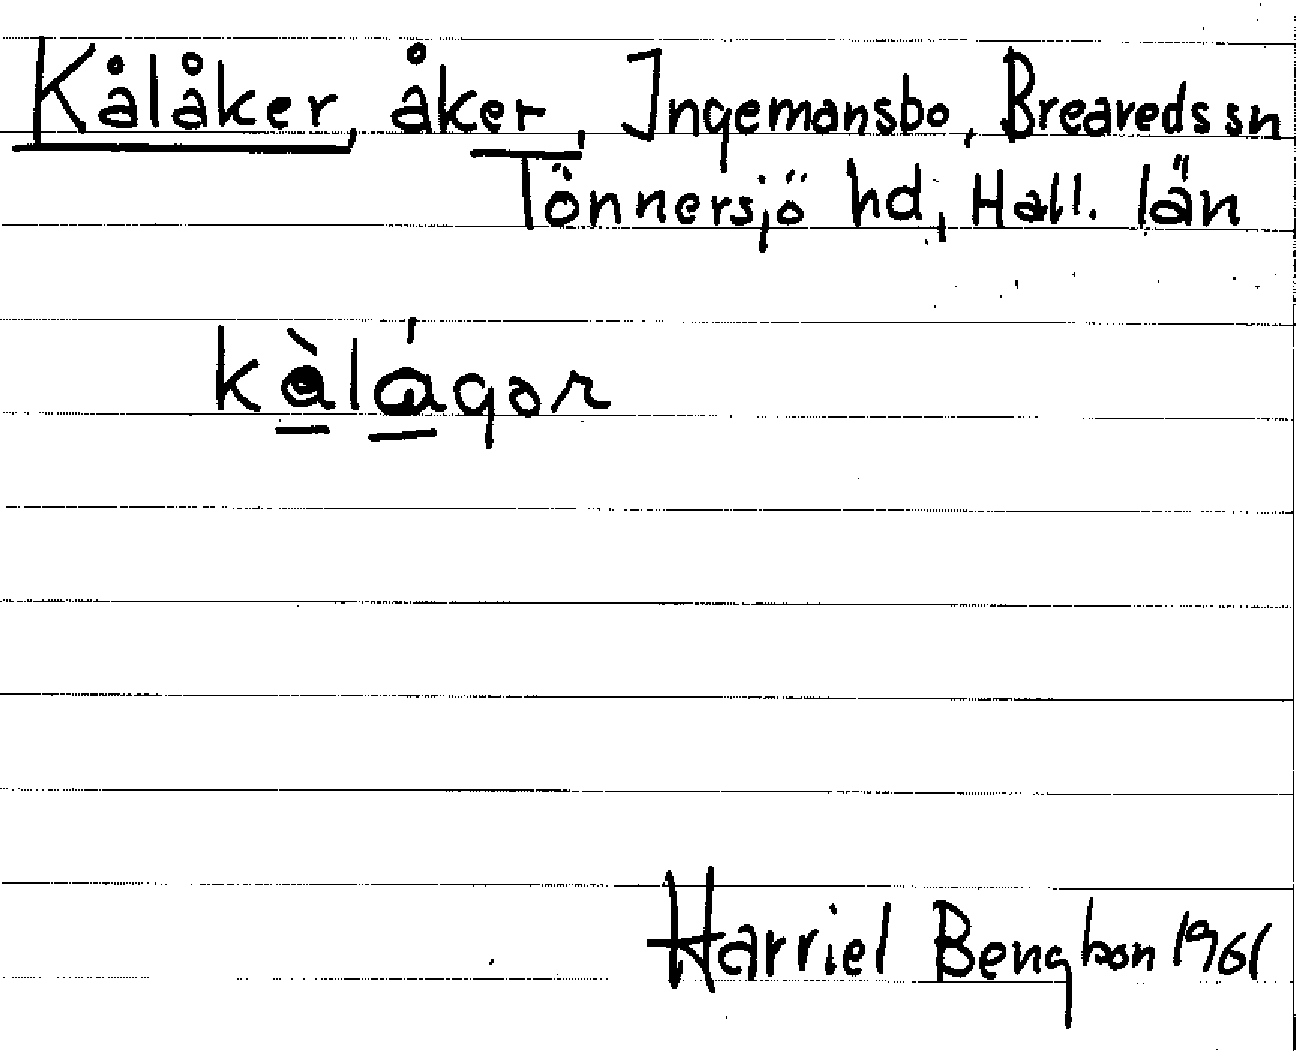 Kålåker, åker, Ingemansbo, Breareds sn
Tönnersjö hd, Hall. län
kàlágor
Harriel Bengtson 1961